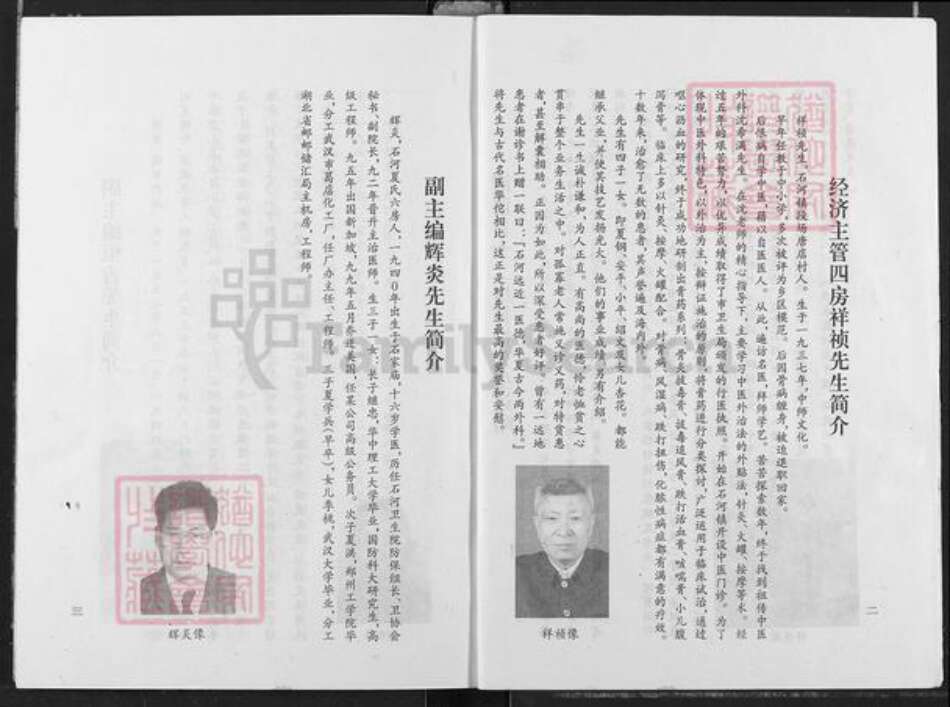 经济主管四房祥祯先生简介
祥祯先生，石河镇段场唐店村人。生于一九三七年，中师文化。
早年任教于中小学，多次被评为乡区模范。后因骨病缠身，被迫退职回家。
后恨病自学中医，藉以自医医人。从此，遍访名医，拜师学艺。苦苦探索数年，终于找到祖传中医
外科沈希满先生。在沈老师的精心指导下，主要学习中医外治法的外贴法，针灸、火罐、按摩等术。经
过五年的艰苦努力，以优异成绩取得了市卫生局颁发的行医执照。开始在石河镇开设中医门诊。为了
体现中医外科特色，以外治为主，按辩证施治的原则，将膏药进行分类探讨，广泛运用于临床试治，通过
呕心沥血的研究，终于成功地研制出膏药系列：骨炎拔毒膏、拔毒追风膏、跌打活血膏、哮喘膏、小儿腹
泻膏等。临床上多以针灸、按摩、火罐配合。对骨病、风湿病、跌打扭伤，化脓性病症都有满意的疗效。
十数年来，治愈了无数的患者，其声誉遍及海内外。
先生有四子一女。即夏钢、安平、小年、绍文及女儿杏花。都能
继承父业，并使其技艺发扬光大。他们的事业成绩，另有介绍。
先生一生诚朴谦和，为人正直。有高尚的医德，怜老恤贫之心
贯串于整个业务生活之中。对孤寡老人常施义诊义药，对特贫患
者，甚至解囊相助。正因为如此，所以深受患者好评，曾有一远地
患者在谢诊书上赠一联曰：“石河远近一医德，华夏古今两外科。”
将先生与古代名医华佗相比，这正是对先生最高的奖誉和安慰。
祥祯像
二
副主编辉炎先生简介
辉炎，石河夏氏六房人，一九四〇年出生于石家庙，十六岁学医，历任石河卫生院防保组长、卫协会
秘书、副院长，九二年晋升主治医师。生三子一女：长子继忠，华中理工大学毕业，国防科大研究生，高
级工程师。九五年出国新加坡，九九年五月奔进美国，任某公司高级公务员。次子夏洪，郑州工学院毕
业，分工武汉市葛店化工厂，任厂办主任、工程师。三子夏学兵（早卒），女儿季桃，武汉大学毕业，分工
湖北省邮邮储汇局主机房，工程师。
辉炎像
三
FamilySearch